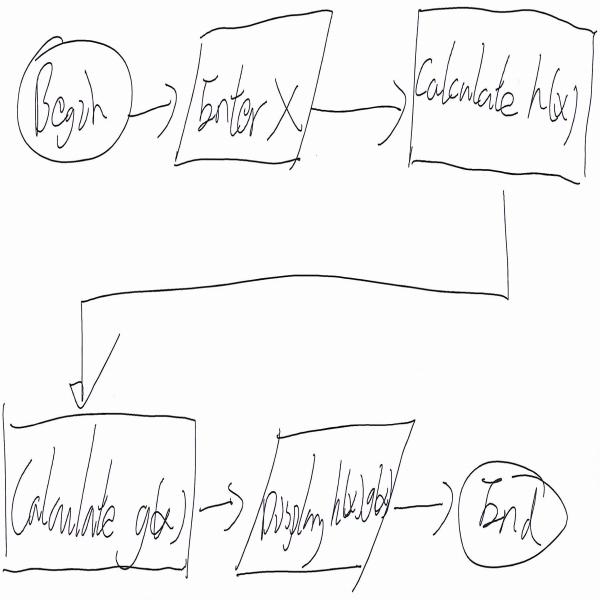 Begin
Enter X
Calculate h(x)
Calculate g(x)
Display h(x),g(x)
End